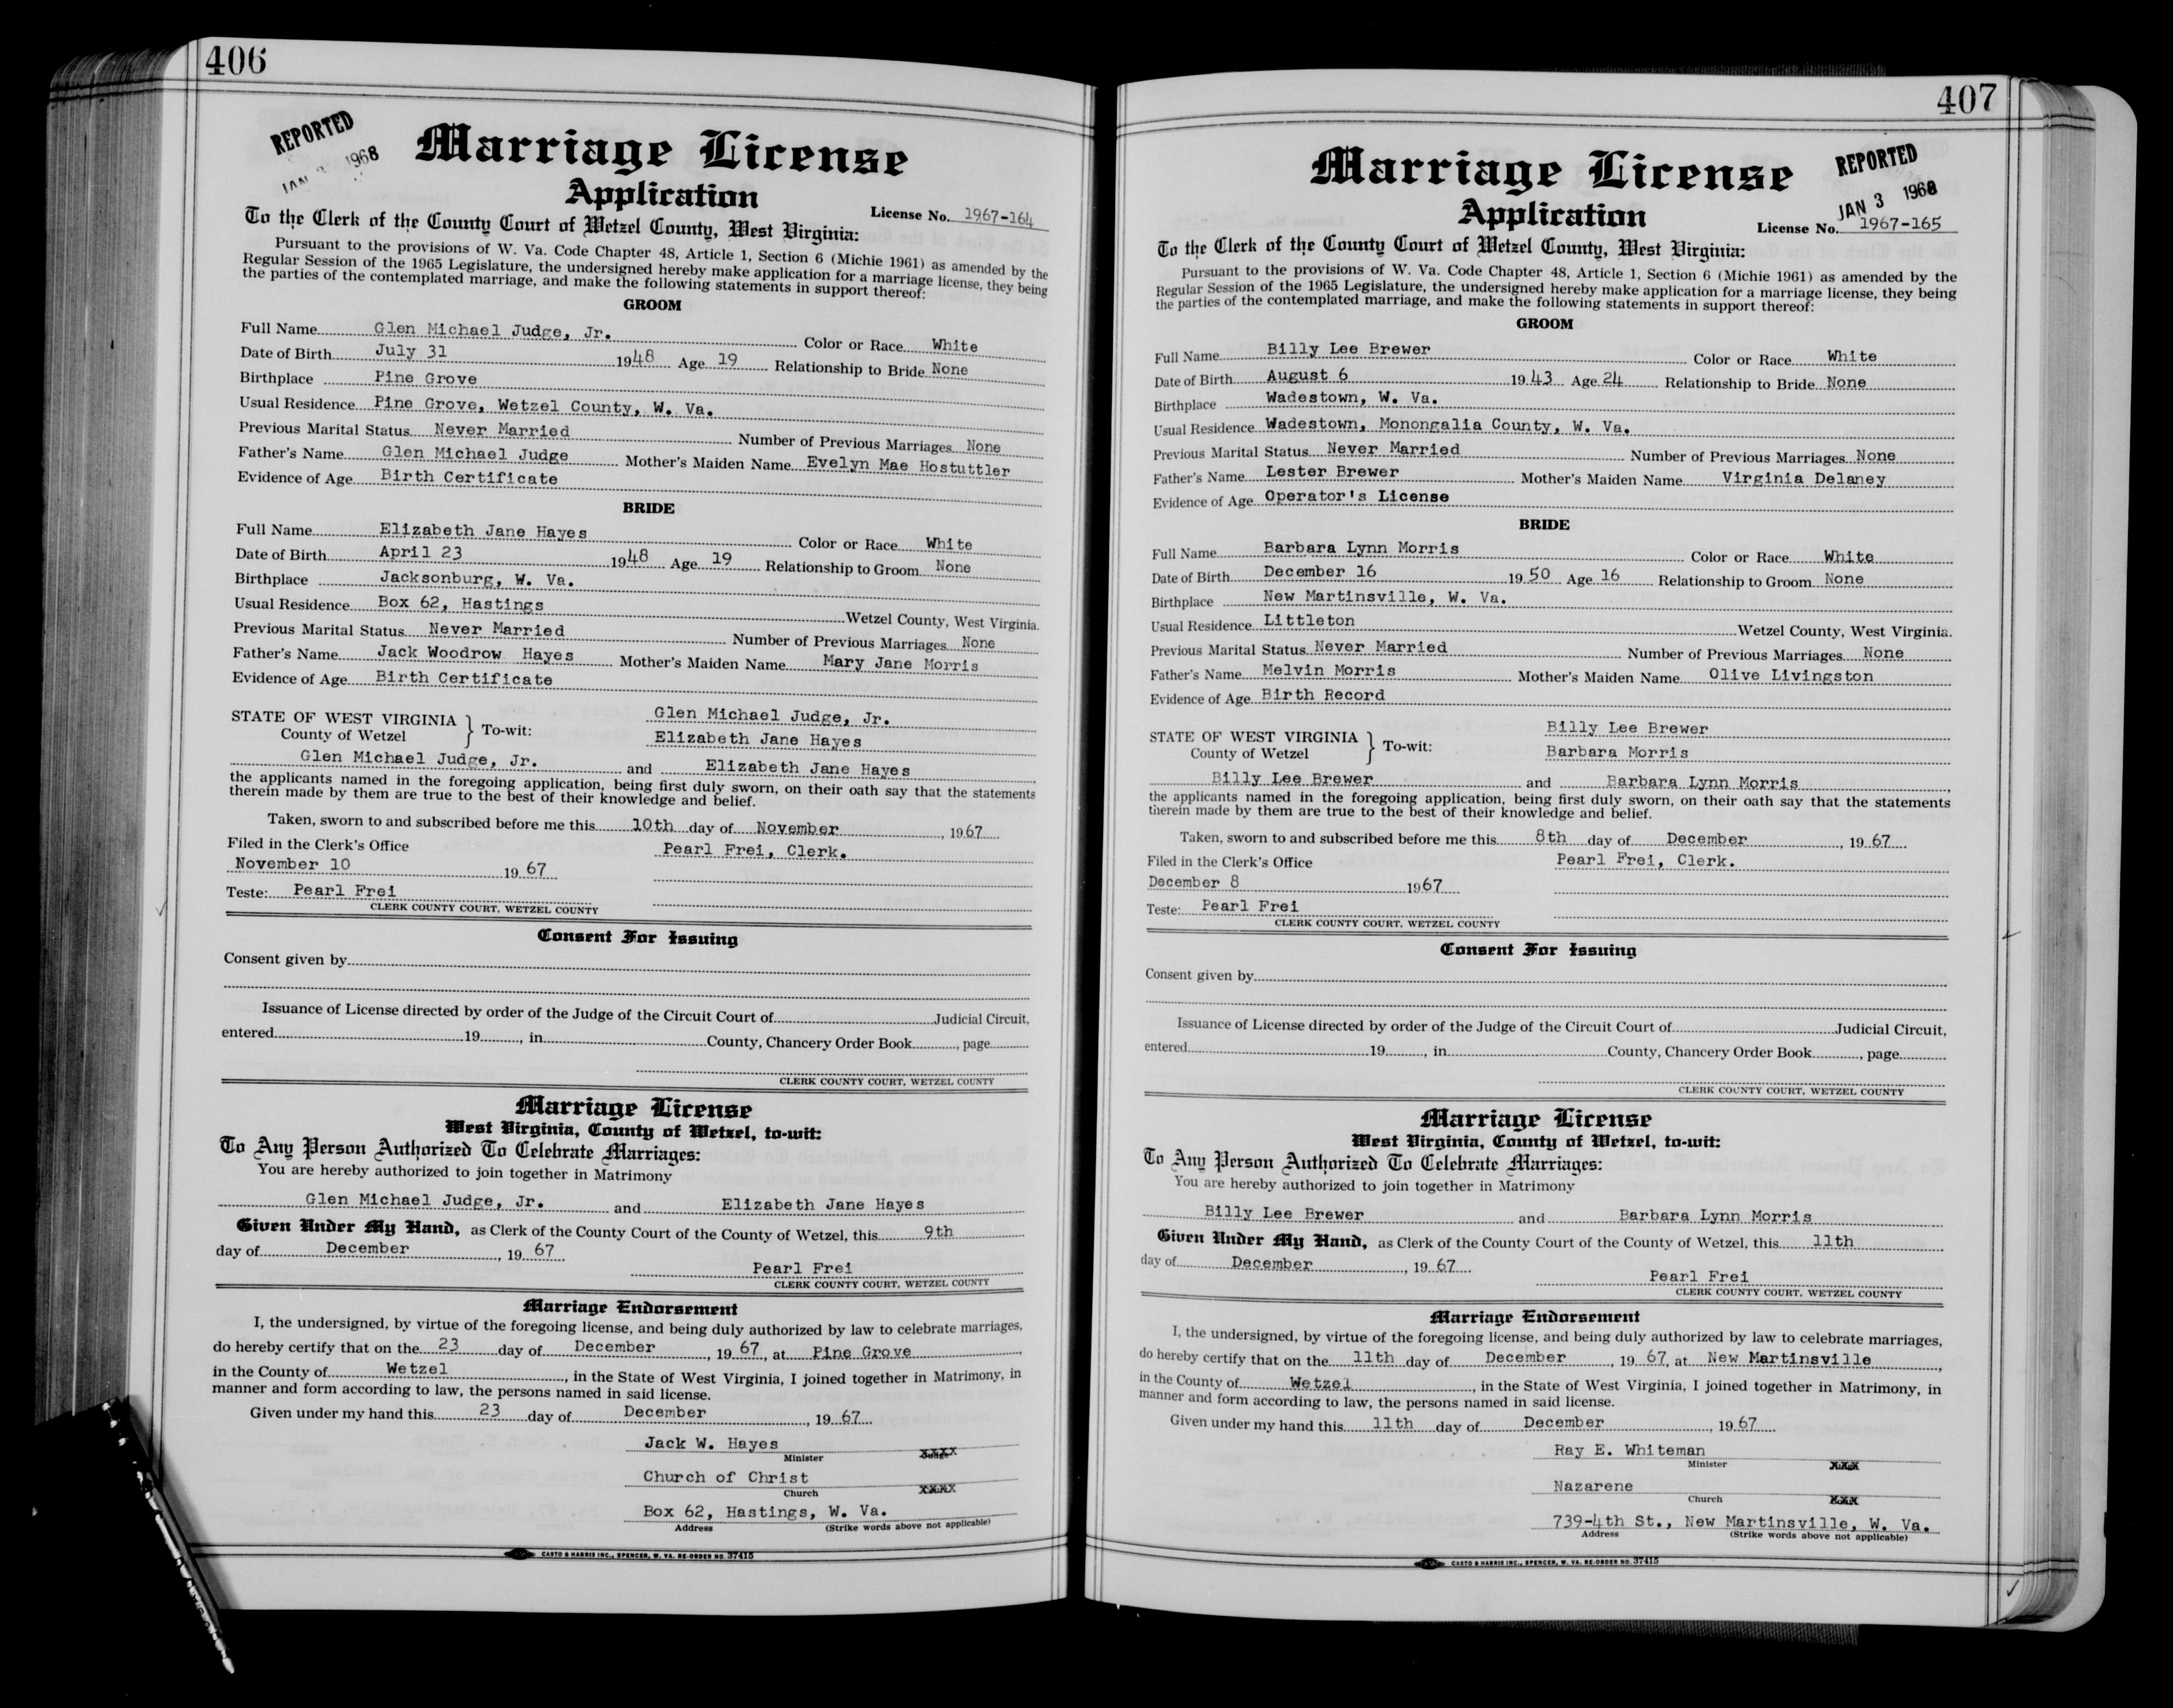 406
REPORTED
1968
Marriage License
Application
License No. 1967-164
To the Clerk of the County Court of Wetzel County, West Virginia:
Pursuant to the provisions of W. Va. Code Chapter 48, Article 1, Section 6 (Michie 1961) as amended by the
Regular Session of the 1965 Legislature, the undersigned hereby make application for a marriage license, they being
the parties of the contemplated marriage, and make the following statements in support thereof:
GROOM
Full Name Glen Michael Judge, Jr. Color or Race White
Date of Birth July 31 1948 Age 19 Relationship to Bride None
Birthplace Pine Grove
Usual Residence Pine Grove, Wetzel County, W. Va.
Previous Marital Status Never Married Number of Previous Marriages None
Father's Name Glen Michael Judge Mother's Maiden Name Evelyn Mae Hostuttler
Evidence of Age Birth Certificate
BRIDE
Full Name Elizabeth Jane Hayes Color or Race White
Date of Birth April 23 1948 Age 19 Relationship to Groom None
Birthplace Jacksonburg, W. Va.
Usual Residence Box 62, Hastings Wetzel County, West Virginia.
Previous Marital Status Never Married Number of Previous Marriages None
Father's Name Jack Woodrow Hayes Mother's Maiden Name Mary Jane Morris
Evidence of Age Birth Certificate
STATE OF WEST VIRGINIA } To-wit: Glen Michael Judge, Jr.
County of Wetzel Elizabeth Jane Hayes
Glen Michael Judge, Jr. and Elizabeth Jane Hayes,
the applicants named in the foregoing application, being first duly sworn, on their oath say that the statements
therein made by them are true to the best of their knowledge and belief.
Taken, sworn to and subscribed before me this 10th day of November, 1967
Filed in the Clerk's Office Pearl Frei, Clerk.
November 10 1967
Teste: Pearl Frei
CLERK COUNTY COURT, WETZEL COUNTY
Consent For Issuing
Consent given by
Issuance of License directed by order of the Judge of the Circuit Court of Judicial Circuit,
entered 19, in County, Chancery Order Book, page
CLERK COUNTY COURT, WETZEL COUNTY
Marriage License
West Virginia, County of Wetzel, to-wit:
To Any Person Authorized To Celebrate Marriages:
You are hereby authorized to join together in Matrimony
Glen Michael Judge, Jr. and Elizabeth Jane Hayes
Given Under My Hand, as Clerk of the County Court of the County of Wetzel, this 9th
day of December, 1967
Pearl Frei
CLERK COUNTY COURT, WETZEL COUNTY
Marriage Endorsement
I, the undersigned, by virtue of the foregoing license, and being duly authorized by law to celebrate marriages,
do hereby certify that on the 23 day of December, 1967, at Pine Grove,
in the County of Wetzel, in the State of West Virginia, I joined together in Matrimony, in
manner and form according to law, the persons named in said license.
Given under my hand this 23 day of December, 1967
Jack W. Hayes
Minister
Church of Christ
Church
Box 62, Hastings, W. Va.
Address (Strike words above not applicable)
CASTO & HARRIS INC., SPENCER, W. VA. RE-ORDER NO. 37415
407
REPORTED
JAN 3 1968
Marriage License
Application
License No. 1967-165
To the Clerk of the County Court of Wetzel County, West Virginia:
Pursuant to the provisions of W. Va. Code Chapter 48, Article 1, Section 6 (Michie 1961) as amended by the
Regular Session of the 1965 Legislature, the undersigned hereby make application for a marriage license, they being
the parties of the contemplated marriage, and make the following statements in support thereof:
GROOM
Full Name Billy Lee Brewer Color or Race White
Date of Birth August 6 1943 Age 24 Relationship to Bride None
Birthplace Wadestown, W. Va.
Usual Residence Wadestown, Monongalia County, W. Va.
Previous Marital Status Never Married Number of Previous Marriages None
Father's Name Lester Brewer Mother's Maiden Name Virginia Delaney
Evidence of Age Operator's License
BRIDE
Full Name Barbara Lynn Morris Color or Race White
Date of Birth December 16 1950 Age 16 Relationship to Groom None
Birthplace New Martinsville, W. Va.
Usual Residence Littleton Wetzel County, West Virginia.
Previous Marital Status Never Married Number of Previous Marriages None
Father's Name Melvin Morris Mother's Maiden Name Olive Livingston
Evidence of Age Birth Record
STATE OF WEST VIRGINIA } To-wit: Billy Lee Brewer
County of Wetzel Barbara Morris
Billy Lee Brewer and Barbara Lynn Morris,
the applicants named in the foregoing application, being first duly sworn, on their oath say that the statements
therein made by them are true to the best of their knowledge and belief.
Taken, sworn to and subscribed before me this 8th day of December, 1967
Filed in the Clerk's Office Pearl Frei, Clerk.
December 8 1967
Teste: Pearl Frei
CLERK COUNTY COURT, WETZEL COUNTY
Consent For Issuing
Consent given by
Issuance of License directed by order of the Judge of the Circuit Court of Judicial Circuit,
entered 19, in County, Chancery Order Book, page
CLERK COUNTY COURT, WETZEL COUNTY
Marriage License
West Virginia, County of Wetzel, to-wit:
To Any Person Authorized To Celebrate Marriages:
You are hereby authorized to join together in Matrimony
Billy Lee Brewer and Barbara Lynn Morris
Given Under My Hand, as Clerk of the County Court of the County of Wetzel, this 11th
day of December, 1967
Pearl Frei
CLERK COUNTY COURT, WETZEL COUNTY
Marriage Endorsement
I, the undersigned, by virtue of the foregoing license, and being duly authorized by law to celebrate marriages,
do hereby certify that on the 11th day of December, 1967, at New Martinsville,
in the County of Wetzel, in the State of West Virginia, I joined together in Matrimony, in
manner and form according to law, the persons named in said license.
Given under my hand this 11th day of December, 1967
Ray E. Whiteman
Minister
Nazarene
Church
739-4th St., New Martinsville, W. Va.
Address (Strike words above not applicable)
CASTO & HARRIS INC., SPENCER, W. VA. RE-ORDER NO. 37415